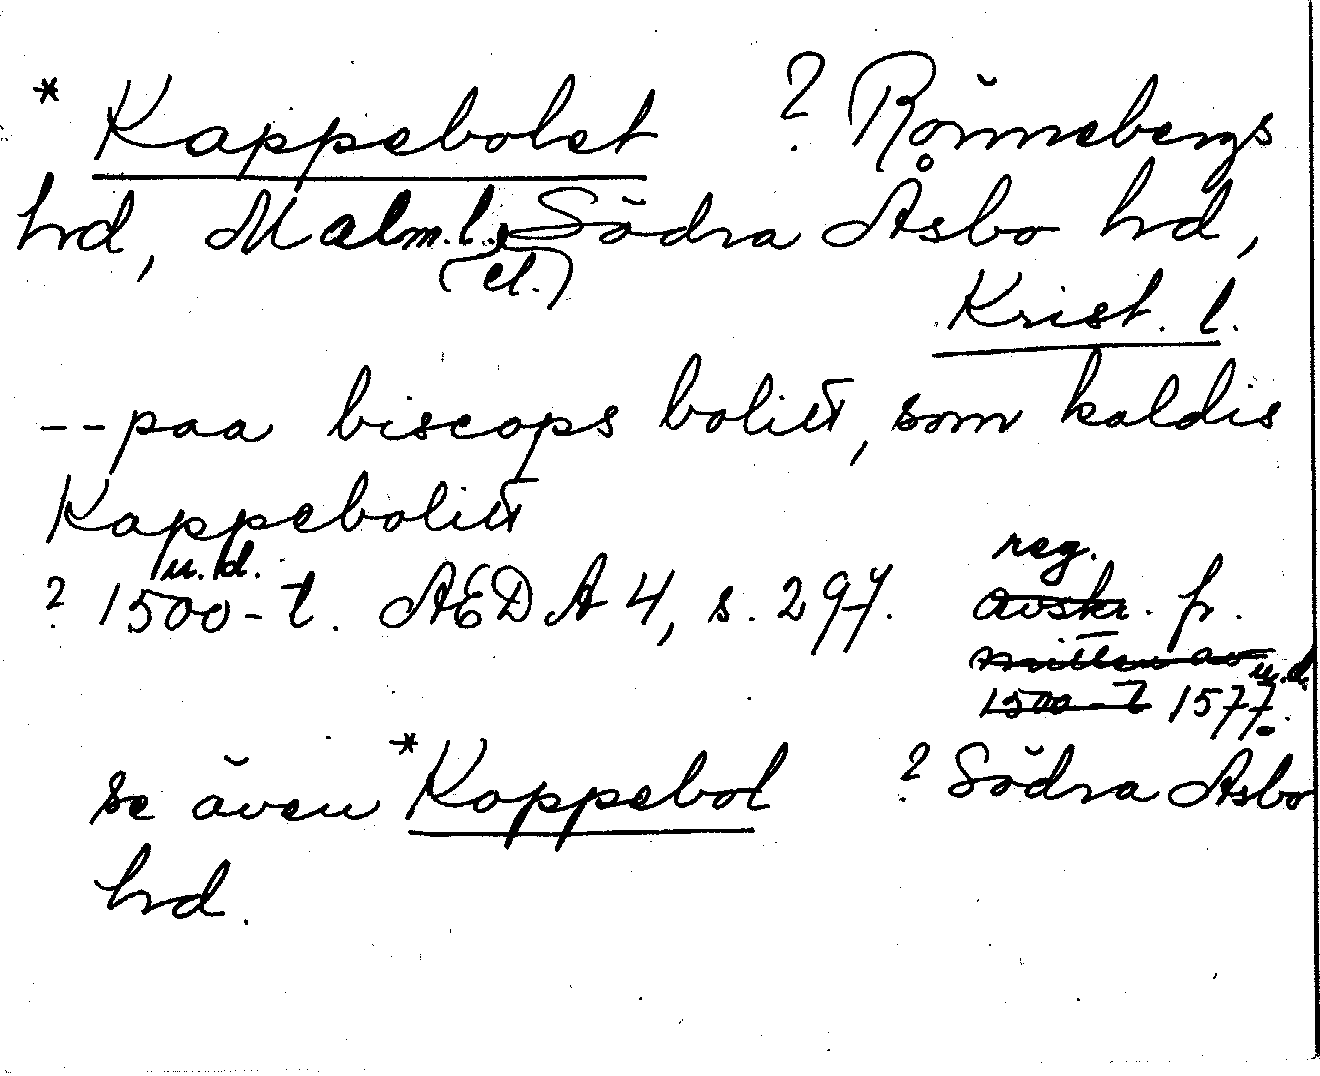 * Kappebolet ? Rönnebergs
hrd, Malm.l., (el.) Södra Åsbo hrd,
Krist. l.
-- paa biscops bolitt, som kaldis
Kappebolitt
? 1500-t. u.d. AEDA 4, s. 297. reg. avskr. fr.
mitten av
1500-t 1577. u.d.
se även *Koppebol ? Södra Åsbo
hrd.